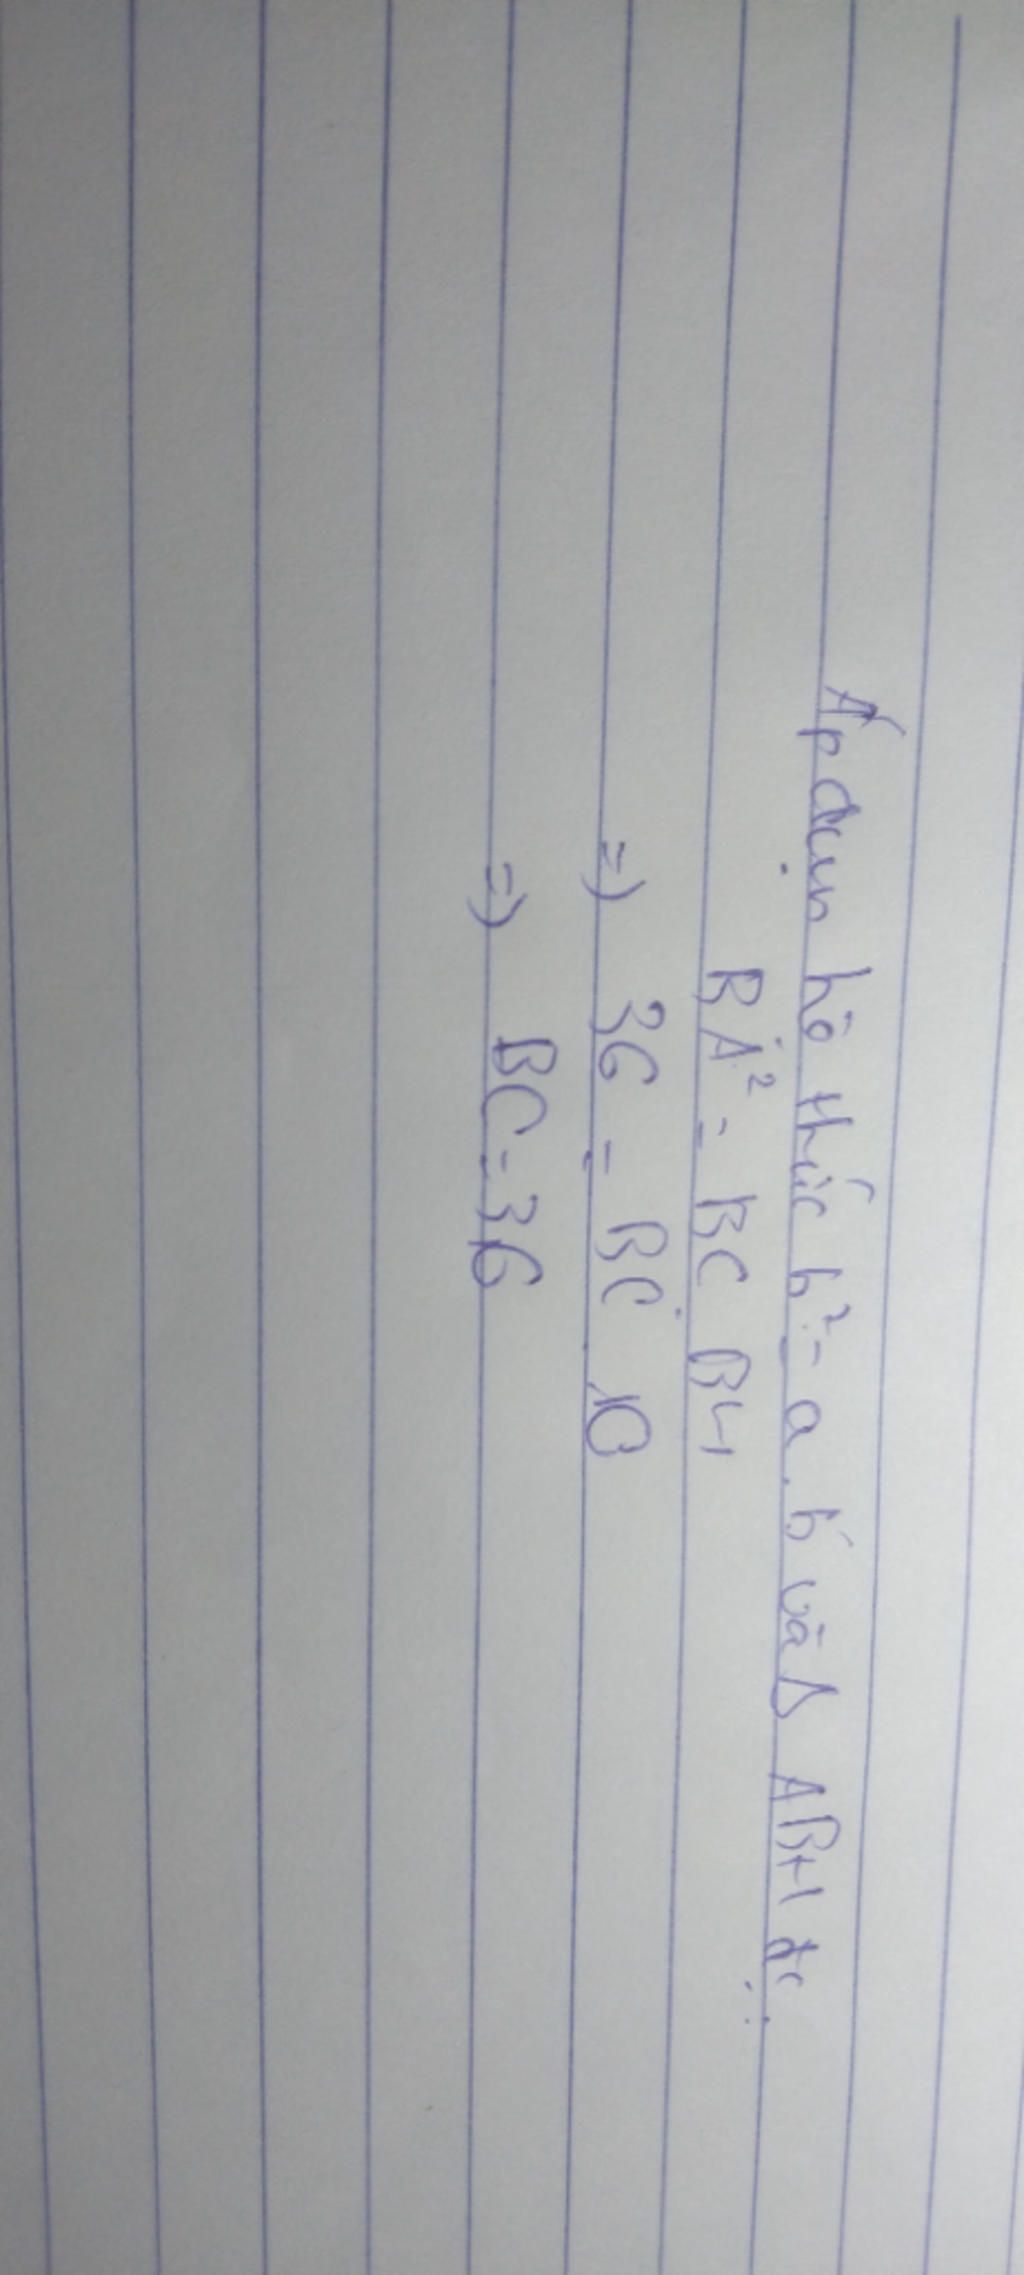 Áp dụn hệ thức b² = a.b' và Δ ABH đc:
BA² = BC BH
=) 36 = BC. 10
=) BC = 36